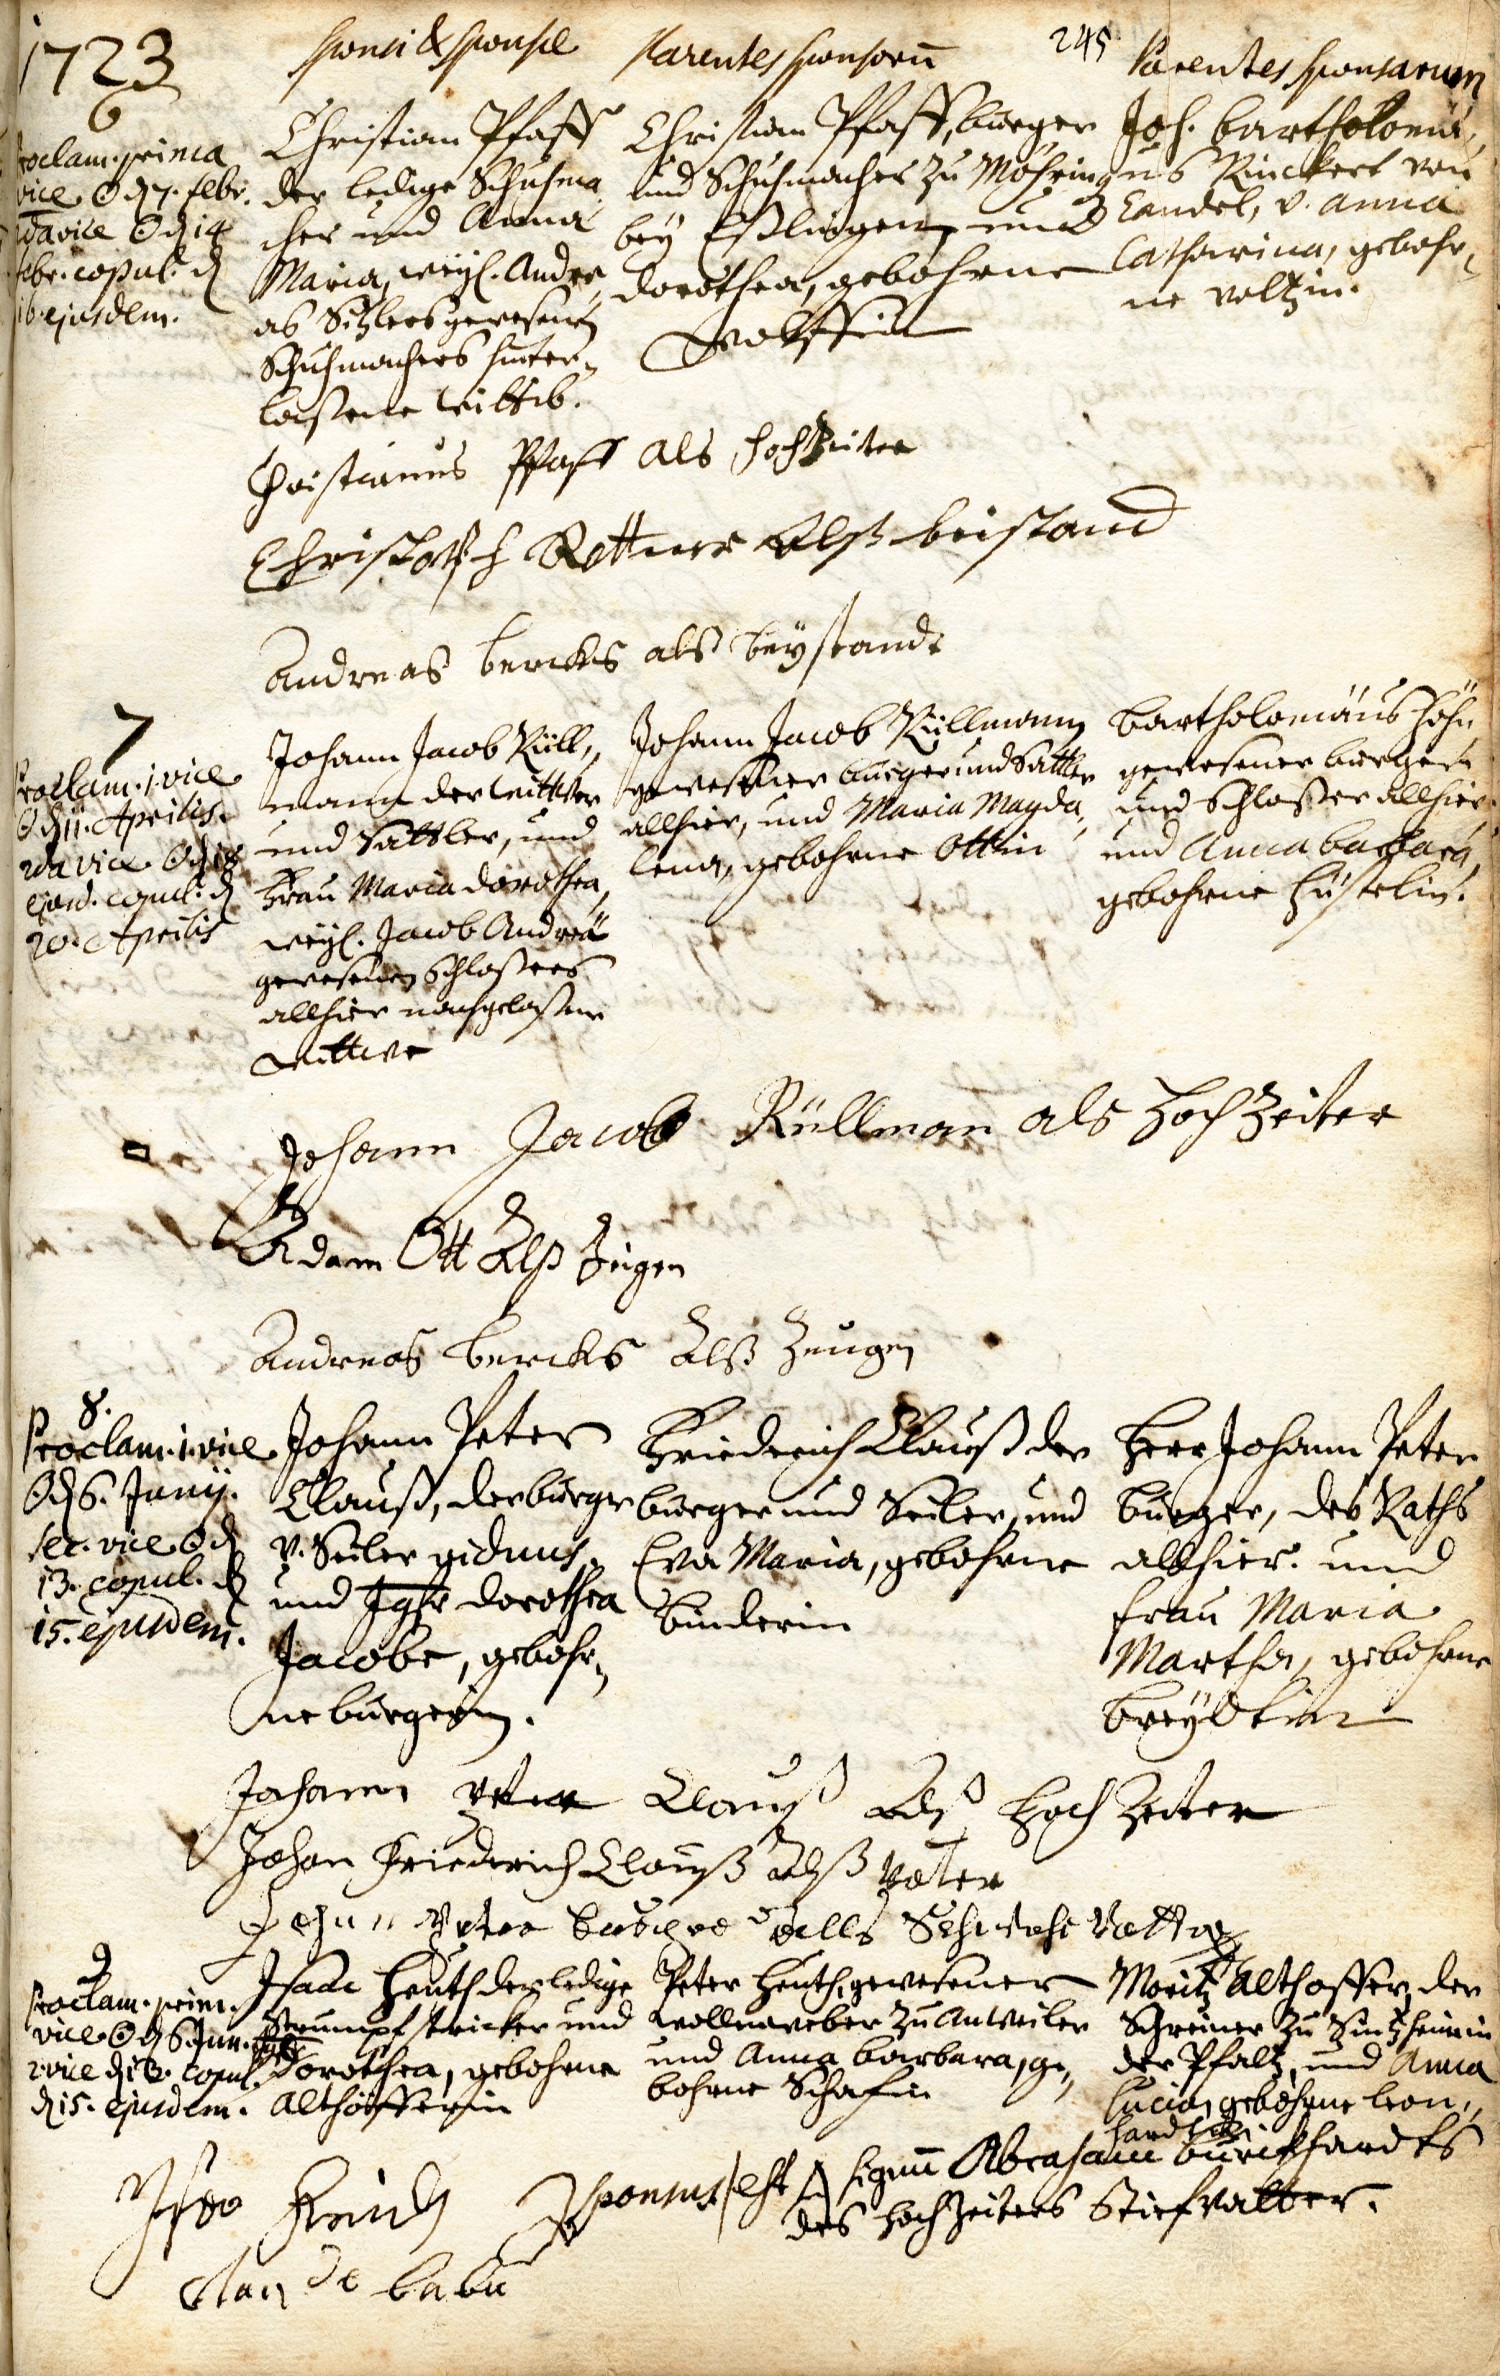 1723
sponsi & sponsæ
Parentes sponsorū
245
Parentes sponsarum
6
Proclam. prima
vice ☉ d. 7. Febr.
2da vice ☉ d. 14
Febr. copul. d.
16. ejusdem.
Christian Pfaff
der ledige Schuhma
cher und Anna
Maria, weyl. Andre,
as Sitzlers gewesenen
Schuhmachers hinter,
laßene Wittib.
Christian Pfaff, burger
und Schuhmacher zu Möhring
bey Eßlingen und
Dorothea, gebohrne
Wolffin
Joh. Bartholomä,
us Rinckert von
Candel, v. Anna
Catharina, gebohr,
ne Veltzin.
Christianus Pfaff als hochzeiter
Christoph Rettner alß beistand
Andreas bercks als beystand
7
Proclam. 1. vice
☉ d. 11. Aprilis.
2da vice ☉ d. 18
ejusd. copul. d.
20. Aprilis
Johann Jacob Rüll,,
mann der Wittwer
und Sattler, und
Frau Maria Dorothea,
weyl. Jacob Andreä
gewesenen Schloßers
allhier nachgelaßene
Wittwe
Johann Jacob Rüllmann
gewesener burger und Sattler
allhier, und Maria Magda,,
lena, gebohrne Ottin
Bartholomäus Höhn
gewesener burger
und Schloßer allhier
und Anna Barbara,
gebohrne Hüstelin.
Johann Jacob Rüllman als Hoch Zeiter
Adam Ott Alß Zeigen
Andreas bercks Alß Zeugen
8.
Proclam. 1. vice
☉ d. 6. Junij.
sec. vice ☉ d.
13. copul. d.
15. ejusdem.
Johann Peter
Clauß, der burger
v. Seiler viduus,
und Jgfr Dorothea
Jacobe, gebohr,
ne burgerin.
Friederich Clauß der
burger und Seiler, und
Eva Maria, gebohrne
Binderin
Herr Johann Peter
Burger, des Raths
allhier. und
Frau Maria
Martha, gebohrne
Breydtin
Johann Peter Clauß Als Hoch Zeiter
Johan Friederich Clauß Alß Vater
Peter als Schwehr Vatter
9
Proclam. prim.
vice ☉ d. 6. Jun.
2 vice d. 13. copul.
d. 15. ejusdem.
Isaac Heuth der ledige
Strumpfstricker und
Dorothea, gebohrne
Althöfferin
Peter Heuth, gewesener
Wollenweber zu Anweiler
und Anna Barbara, ge,,
bohrne Schafin
Moritz Althoffer, der
Schreiner zu Sintzheim in
der Pfaltz, und Anna
Lucia, gebohrne Leon,,
hardtin
sponsus
signū Abraham Burckhardts
des Hochzeiters Stiefvatter.